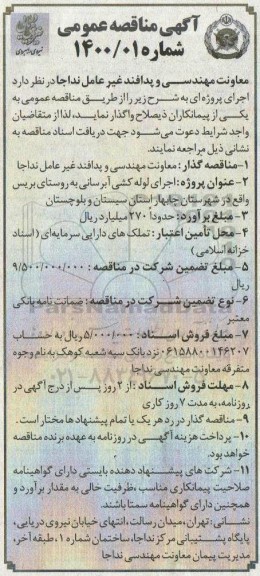 آگهی مناقصه عمومی
شماره ۱۴۰۰/۰۱
معاونت مهندسی و پدافند غیر عامل نداجا در نظر دارد
اجرای پروژه ای به شرح زیر را از طریق مناقصه عمومی به
یکی از پیمانکاران ذیصلاح واگذار نماید، لذا از متقاضیان
واجد شرایط دعوت می شود جهت دریافت اسناد مناقصه به
نشانی ذیل مراجعه نمایند.
۱-مناقصه گذار: معاونت مهندسی و پدافند غیر عامل نداجا
۲-عنوان پروژه: اجرای لوله کشی آبرسانی به روستای بریس
واقع در شهرستان چابهار استان سیستان و بلوچستان
۳- مبلغ برآورد: حدوداً ۲۷۰ میلیارد ریال
۴- محل تأمین اعتبار: تملک های دارایی سرمایه ای (اسناد
خزانه اسلامی)
۵- مبلغ تضمین شرکت در مناقصه: ۹/۵۰۰/۰۰۰/۰۰۰
ریال
۶- نوع تضمین شرکت در مناقصه: ضمانت نامه بانکی
معتبر
۷- مبلغ فروش اسناد: ۵/۰۰۰/۰۰۰ ریال به حساب
۰۶۱۵۸۸۰۰۱۴۶۲۰۷ نزد بانک سپه شعبه کوهک به نام وجوه
متفرقه معاونت مهندسی نداجا
۸- مهلت فروش اسناد: از ۲ روز پس از درج آگهی در
روزنامه، به مدت ۷ روز کاری
۹- مناقصه گذار در رد هر یک یا تمام پیشنهادها مختار است.
۱۰- پرداخت هزینه آگهی در روزنامه به عهده برنده مناقصه
خواهد بود.
۱۱- شرکت های پیشنهاد دهنده بایستی دارای گواهینامه
صلاحیت پیمانکاری مناسب، ظرفیت خالی به مقدار برآورد و
همچنین دارای گواهینامه سمتا باشند.
نشانی: تهران، میدان رسالت، انتهای خیابان نیروی دریایی،
پایگاه پشتیبانی مرکز نداجا، ساختمان شماره ۱، طبقه آخر،
مدیریت پیمان معاونت مهندسی نداجا